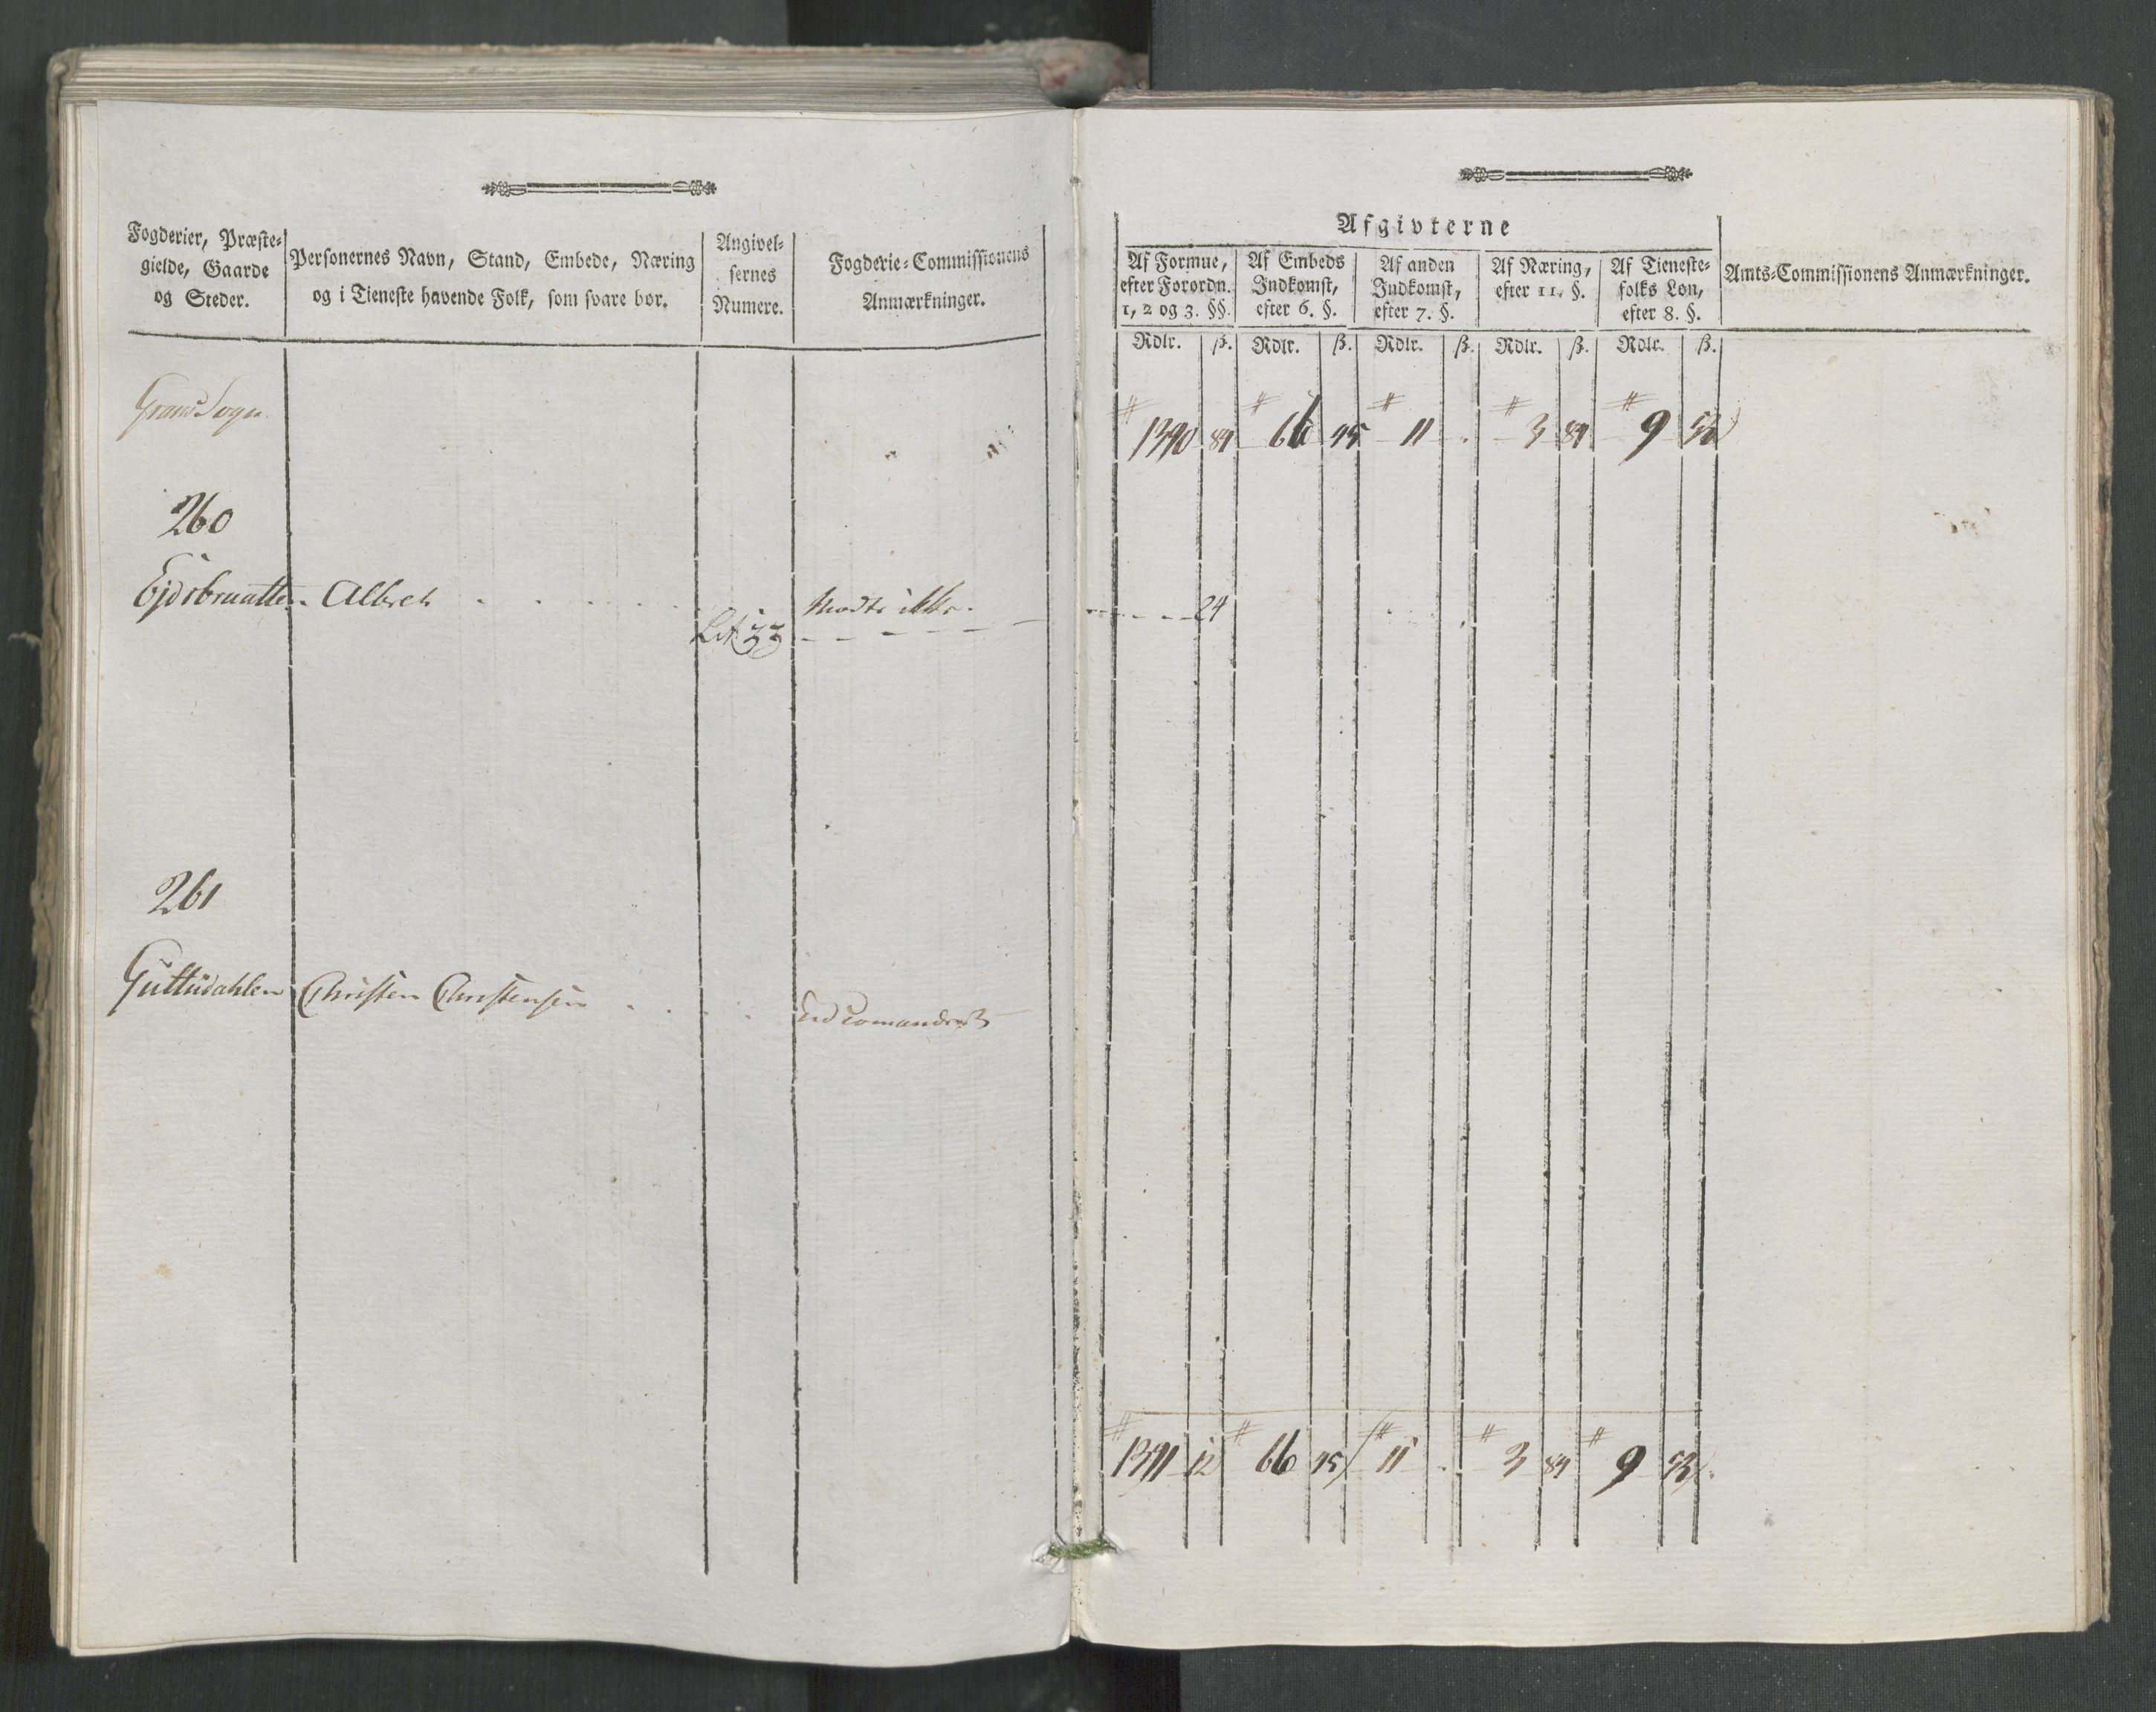 Fogderier, Præste-
gielde, Gaarde
og Steder.
Personernes Navn, Stand, Embede, Næring
og i Tieneste havende Folk, som svare bør.
Angivel-
sernes
Numere.
Fogderie-Commissionens
Anmærkninger.
Grans Sogn
260
Ejdsbraatten Albret
Lit. zz
Modte ikke.
261
Guttudahlen Christen Christensen
Erd Comanderet
Afgivterne
Af Formue,
efter Forordn.
1, 2 og 3. §§.
Af Embeds
Indkomst,
efter 6. §.
Af anden
Indkomst,
efter 7. §.
Af Næring,
efter 11. §.
Af Tieneste-
folks Løn,
efter 8. §.
Amts-Commissionens Anmærkninger.
Rdlr. ß. Rdlr. ß. Rdlr. ß. Rdlr. ß. Rdlr. ß.
1390 84 66 45 11 . 3 84 9 53
24
1391 12 66 45 11 . 3 84 9 53